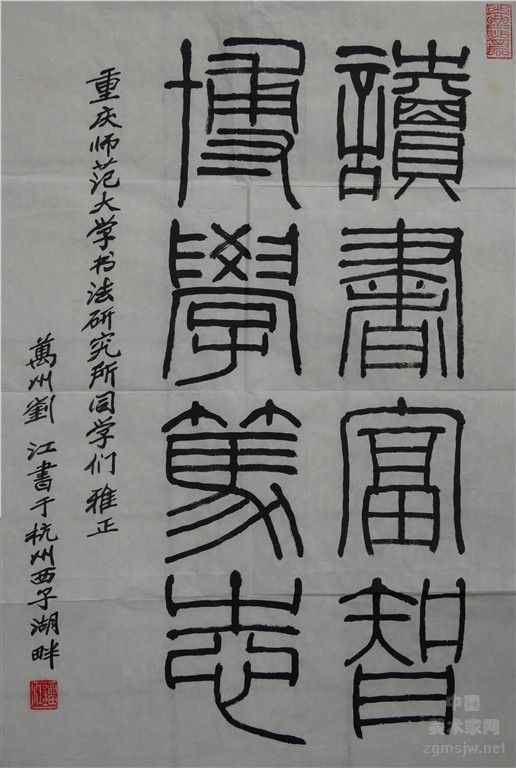 讀書富智
博學篤志
重庆师范大学书法研究所同学们 雅正
萬州劉江書于杭州西子湖畔
中国
美术家网
zgmsjw.net